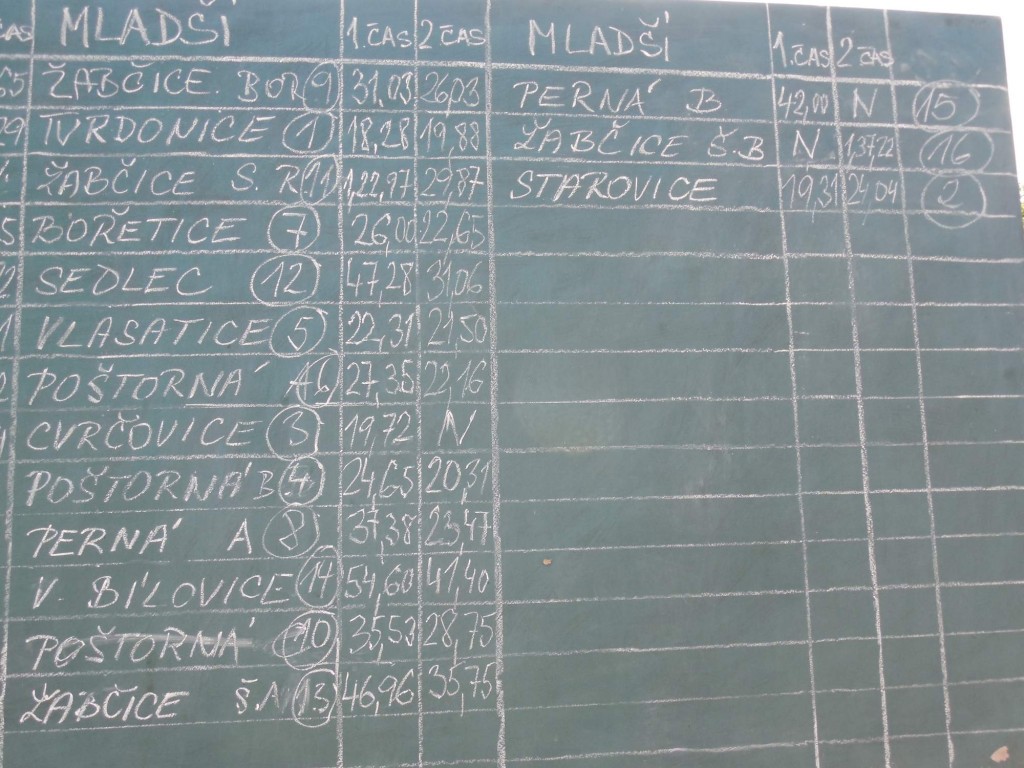 ČAS MLADŠÍ 1.ČAS 2 ČAS
ŽABČICE. BOR 9 31,03 26,03
TVRDONICE 1 18,28 19,88
ŽABČICE S. R 11 1,22,97 29,87
BOŘETICE 7 26,00 22,65
SEDLEC 12 47,28 31,06
VLASATICE 5 22,31 21,50
POŠTORNÁ A 6 27,35 22,16
CVRČOVICE 3 19,72 N
POŠTORNÁ B 4 24,65 20,31
PERNÁ A 8 37,38 23,47
V. BÍLOVICE 14 54,60 41,40
POŠTORNÁ 10 35,53 28,75
ŽABČICE Š.N 13 46,96 35,75
MLADŠÍ 1.ČAS 2 ČAS
PERNÁ B 42,00 N 15
ŽABČICE Š.B N 1,37,22 16
STAROVICE 19,31 21,04 2